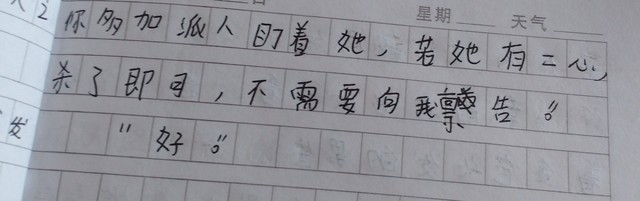 星期 天气
你多加派人盯着她，若她有二心，
杀了即可，不需要向我禀告。”
发
“好。”